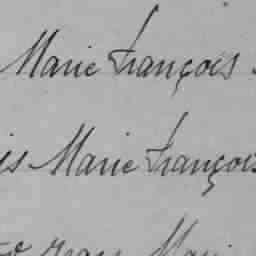 Marie François
is Marie François
Jean Mari